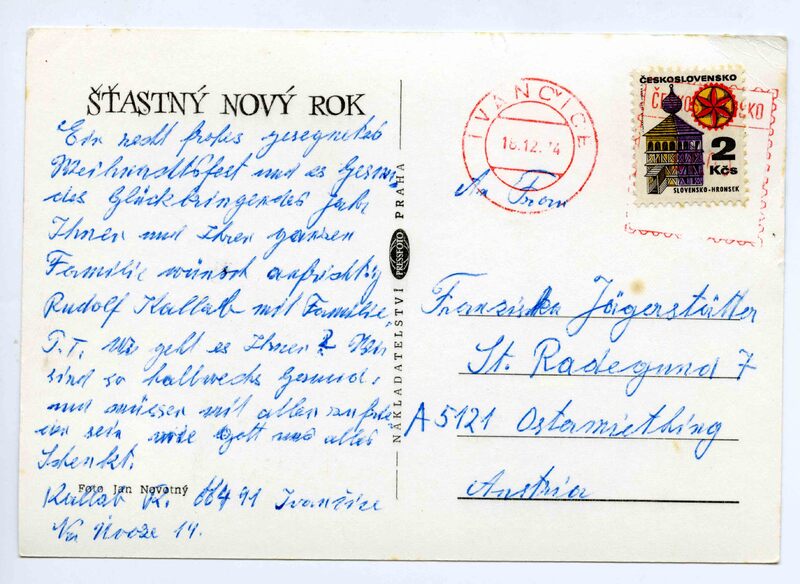 ŠŤASTNÝ NOVÝ ROK
Ein recht frohes gesegnetes
Weihnachtsfest und es Gesun
des Glückbringendes Jahr
Ihnen und Ihrer ganzen
Familie wünscht aufrichtig
Rudolf Kallab mit Familie
P.T. Wie geht es Ihnen? Wir
sind so halbwechs Gesund,
und müssen mit allen zufrie
den sein wie Gott uns alles
Schenkt.
Foto Jan Novotný
Kallab R. 66491 Ivančice
Na 14.
NAKLADATELSTVÍ PRESSFOTO PRAHA
IVANČICE
18.12.74
ČESKOSLOVENSKO
2
Kčs
SLOVENSKO-HRONSEK
An Frau
Franziska Jägerstätter
St. Radegund 7
A 5121 Ostermiething
Austria